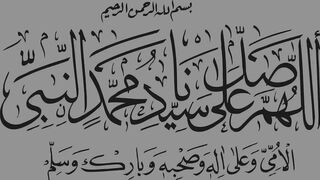 بسم الله الرحمن الرحيم
اللهم صل على سيدنا محمد النبي
الأمي وعلى آله وصحبه وبارك وسلم